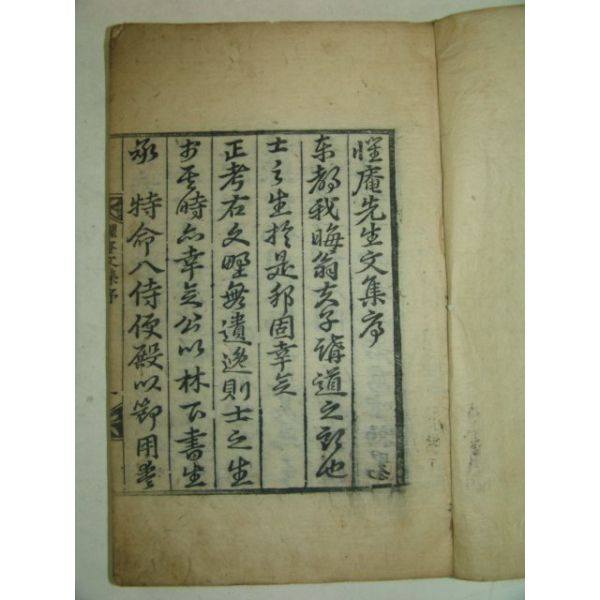 懼庵先生文集序
東都我晦翁夫子講道之鄉也
士之生於是邦固幸矣
正考右文野無遺逸則士之生
於其時亦幸矣公以林下書生
承 特命入侍便殿以節用愛
懼庵文集序 一